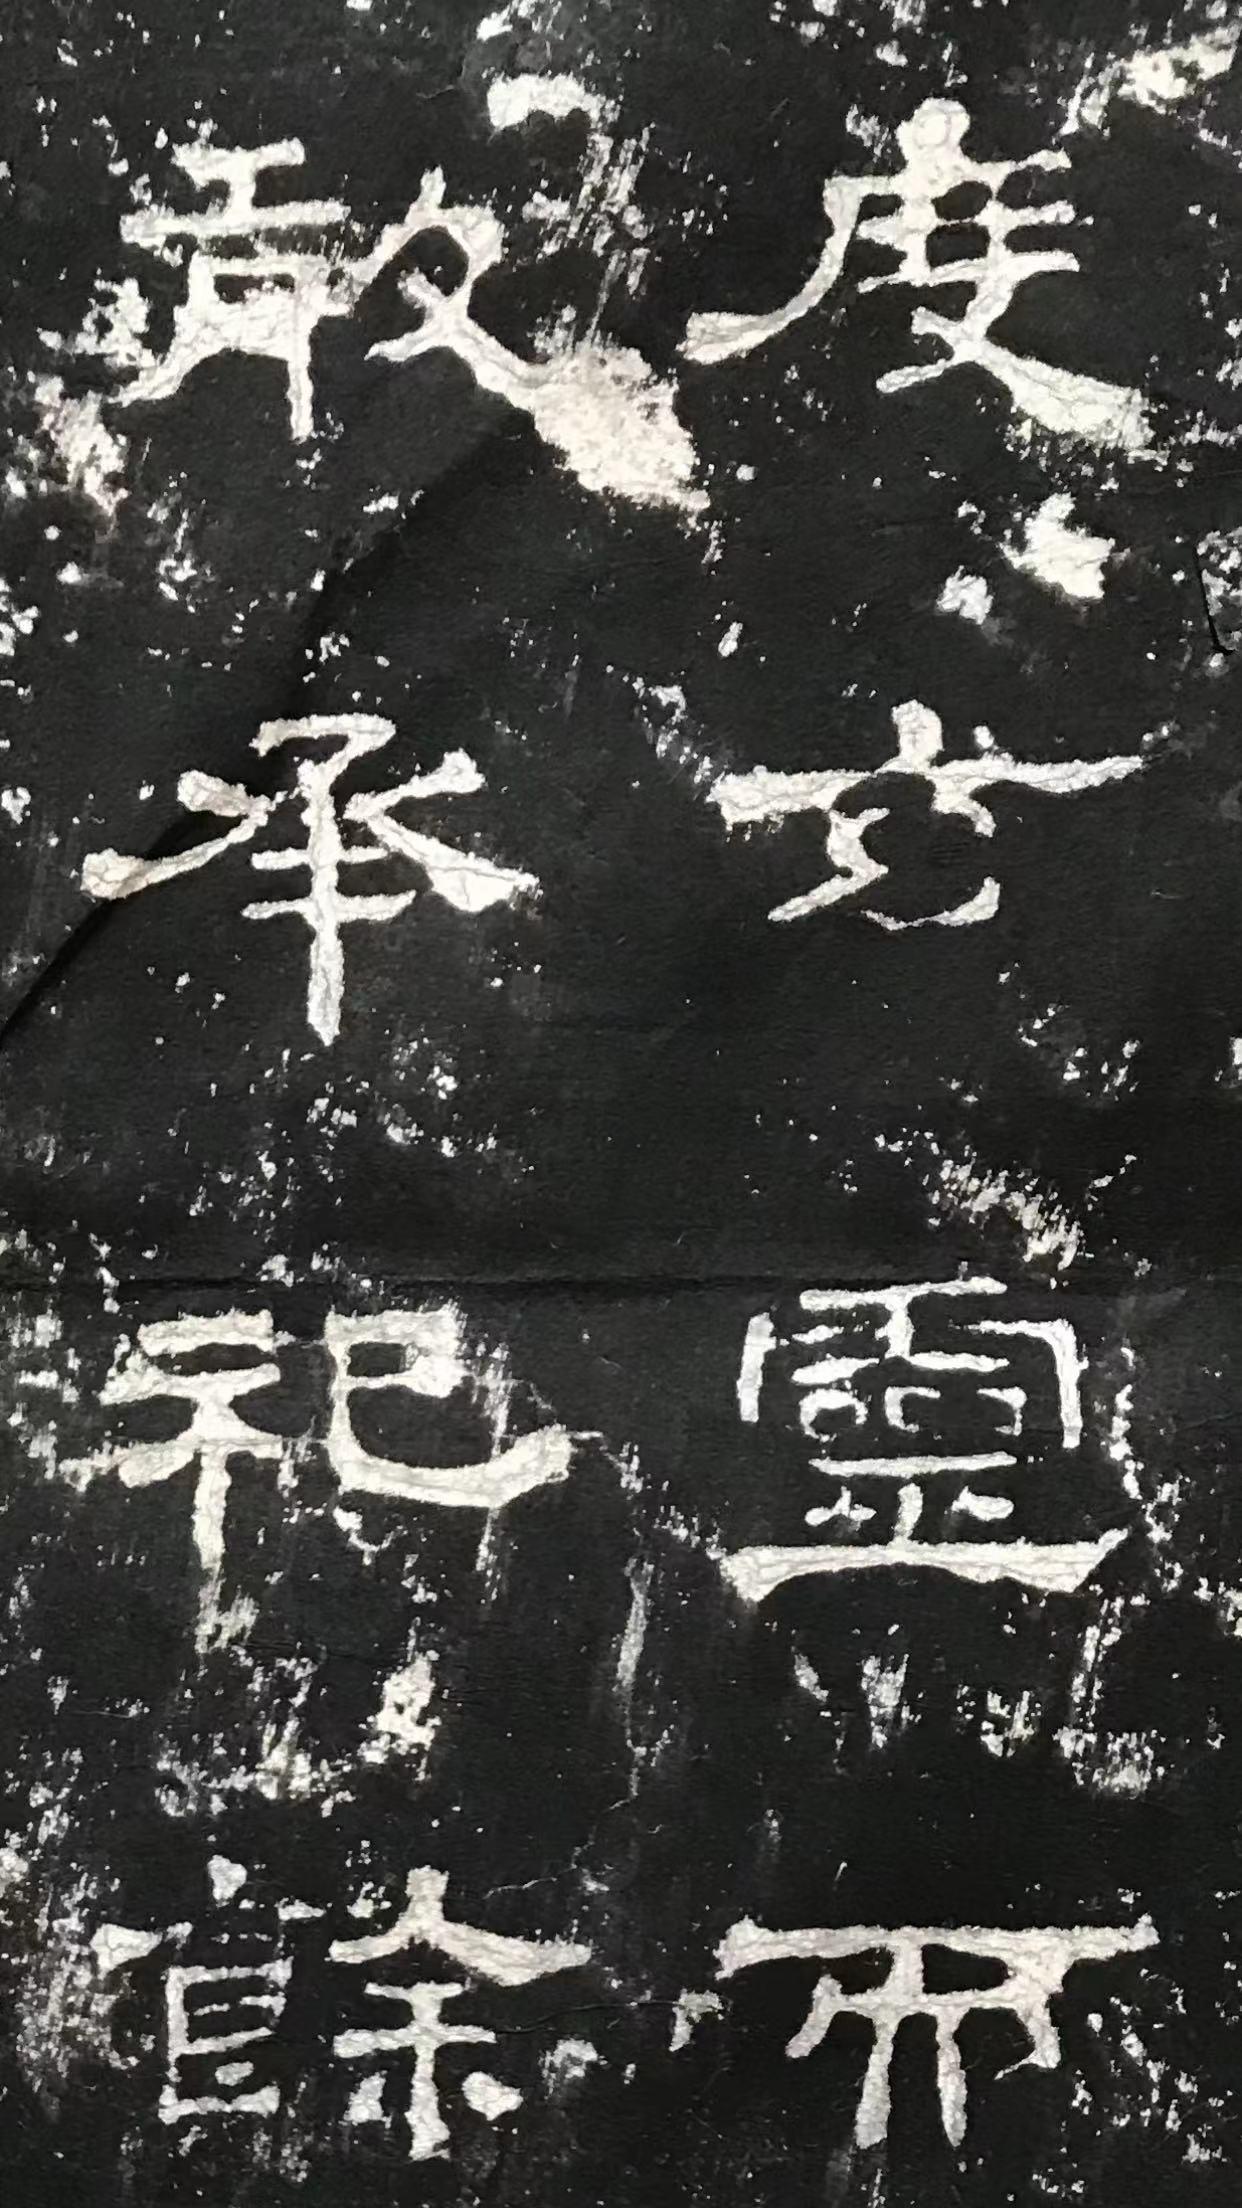 度玄靈而
敢承祀餘